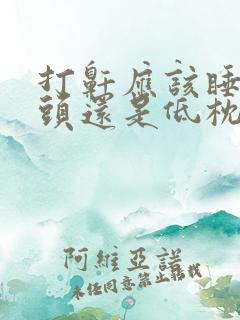 打鼾應該睡
頭還是低枕
阿維亞諾
未任同意禁止轉載